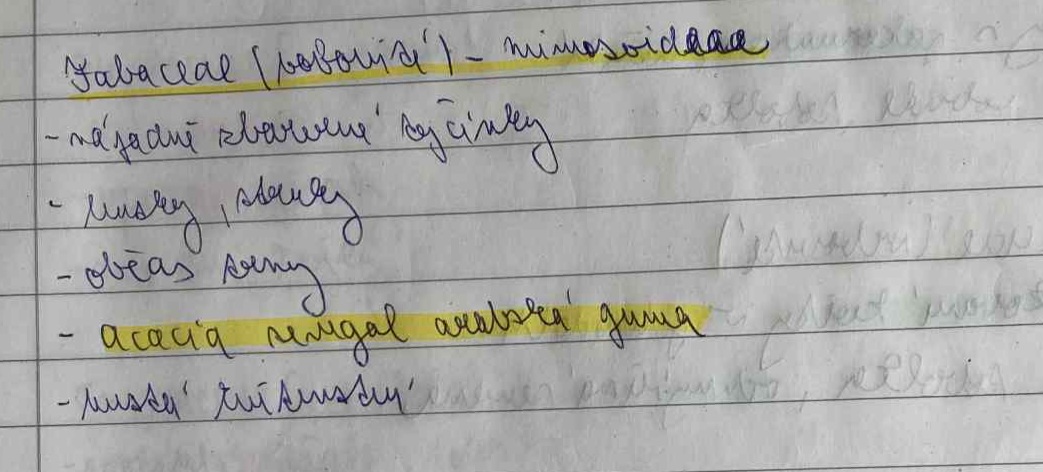 Fabaceae (bobovité) - mimosoideae
- nápadně zbarvené tyčinky
- lusky, struky
- občas trny
- acacia senegal arabská guma
- hustá květenství